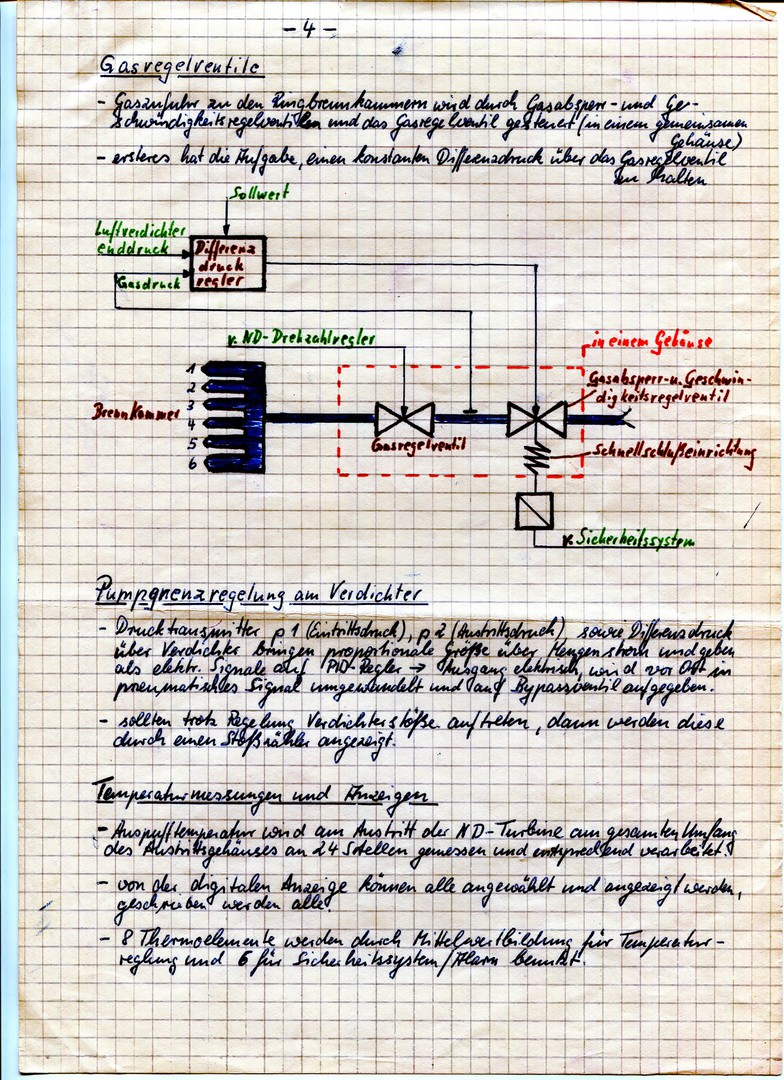 - 4 -
Gasregelventile
- Gaszufuhr zu den Ringbrennkammern wird durch Gasabsperr- und Ge-
schwindigkeitsregelventilen und das Gasregelventil gesteuert (in einem gemeinsamen
Gehäuse)
- ersteres hat die Aufgabe, einen konstanten Differenzdruck über das Gasregelventil
zu halten
Sollwert
Luftverdichter
enddruck
Differenz
druck
regler
Gasdruck
v. ND-Drehzahlregler
in einem Gehäuse
1
2
3
4
5
6
Brennkammer
Gasabsperr-u. Geschwin-
digkeitsregelventil
Gasregelventil
Schnellschlußeinrichtung
v. Sicherheitssystem
Pumpgrenzregelung am Verdichter
- Drucktransmitter p 1 (Eintrittsdruck), p 2 (Austrittsdruck), sowie Differenzdruck
über Verdichter bringen proportionale Größe über Mengenstrom und geben
als elektr. Signale auf PID-Regler → Ausgang elektrisch, wird vor Ort in
pneumatisches Signal umgewandelt und auf Bypassventil aufgegeben.
- sollten trotz Regelung Verdichterstöße auftreten, dann werden diese
durch einen Stoßzähler angezeigt.
Temperaturmessungen und Anzeigen
- Auspufftemperatur wird am Austritt der ND-Turbine am gesamten Umfang
des Austrittsgehäuses an 24 Stellen gemessen und entsprechend verarbeitet.
- von der digitalen Anzeige können alle angewählt und angezeigt werden,
geschrieben werden alle.
- 8 Thermoelemente werden durch Mittelwertbildung für Temperatur-
reglung und 6 für Sicherheitssystem/Alarm benutzt.